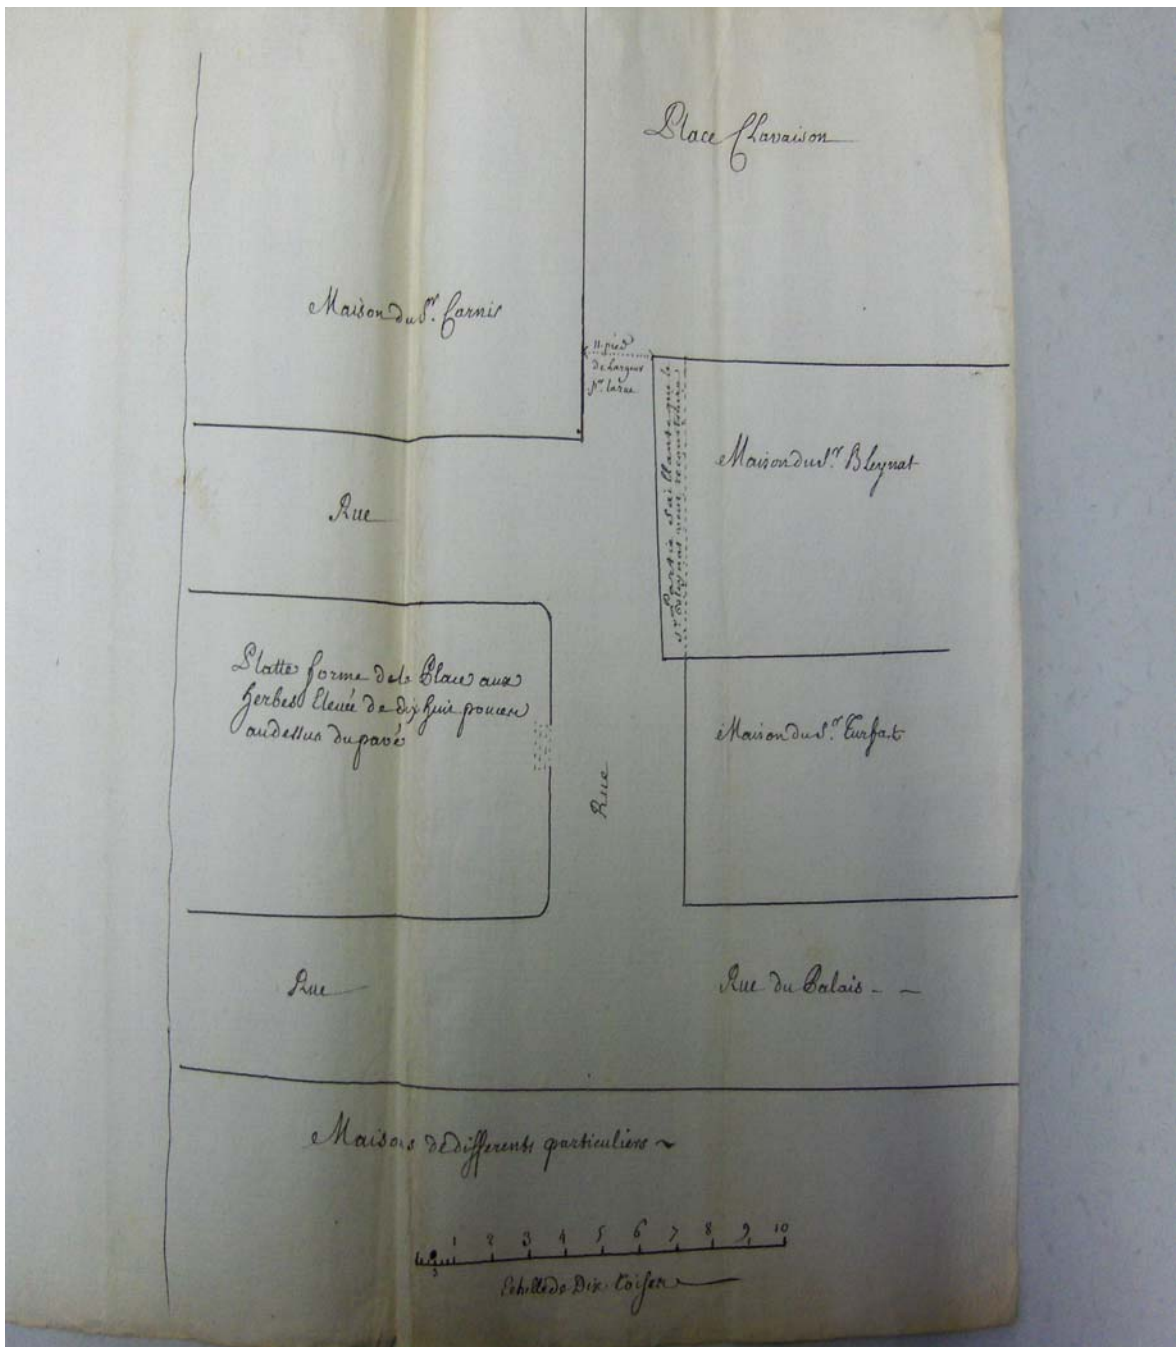 Place Clavaison
Maison du Sr. Carnis
11. pied
de largeur
pr. la rue
Maison du Sr. Bleynat
Partie Saillante que le
Sr. Bleynat veut reconstruire
Rue
Platte forme de la Place aux
herbes Elevée de dix huit pouces
au dessus du pavé
Maison du Sr. Turfat
Rue
Rue
Rue du Palais - -
Maisons de differents particuliers ~
1 2 3 4 5 6 7 8 9 10
3
Echelle de Dix toises